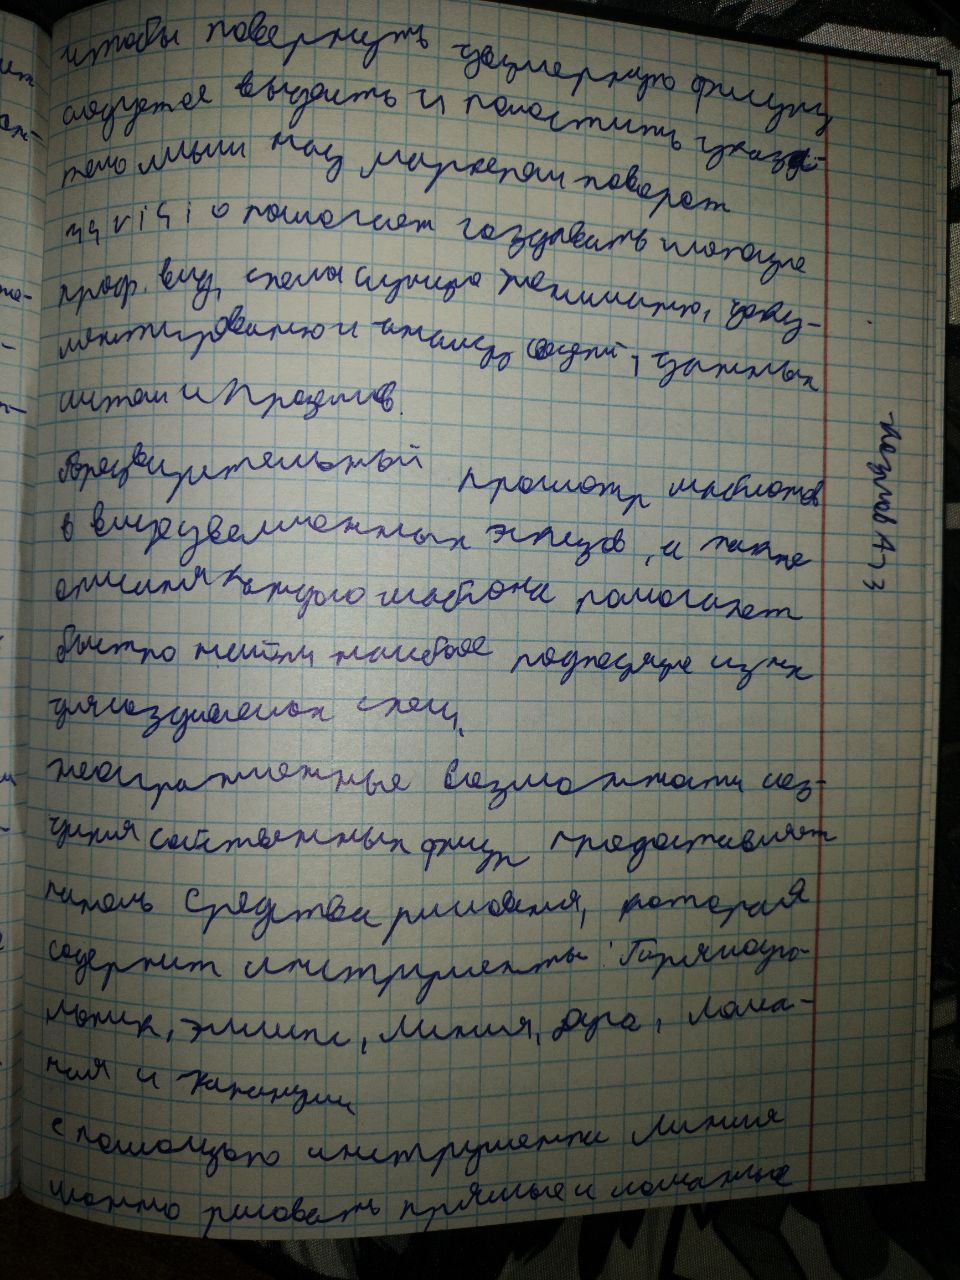 чтобы повернуть двумерную фигуру
следует ее выделить и поместить указа-
тель мыши над маркером поворот
M V I S I O помогает создавать
проф. вид, схемы, доку-
ментированию и анализу сведений, данных
систем и процессов.
Предварительный просмотр шаблонов
в виде увеличенных эскизов, а также
описания каждого шаблона помогает
быстро найти наиболее подходящие из них
для создаваемых схем.
неограниченные возможности соз-
дания собственных фигур предоставляет
панель Средства рисования, которая
содержит инструменты: Прямоуго-
льник, эллипс, Линия, Дуга, Лома-
ная и карандаш
с помощью инструмента Линия
можно рисовать прямые и ломаные
А-73